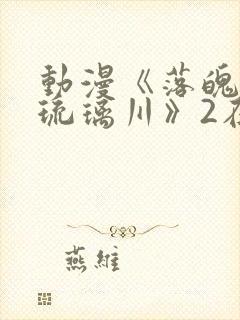 動漫《落魄
琉璃川》2在
燕維